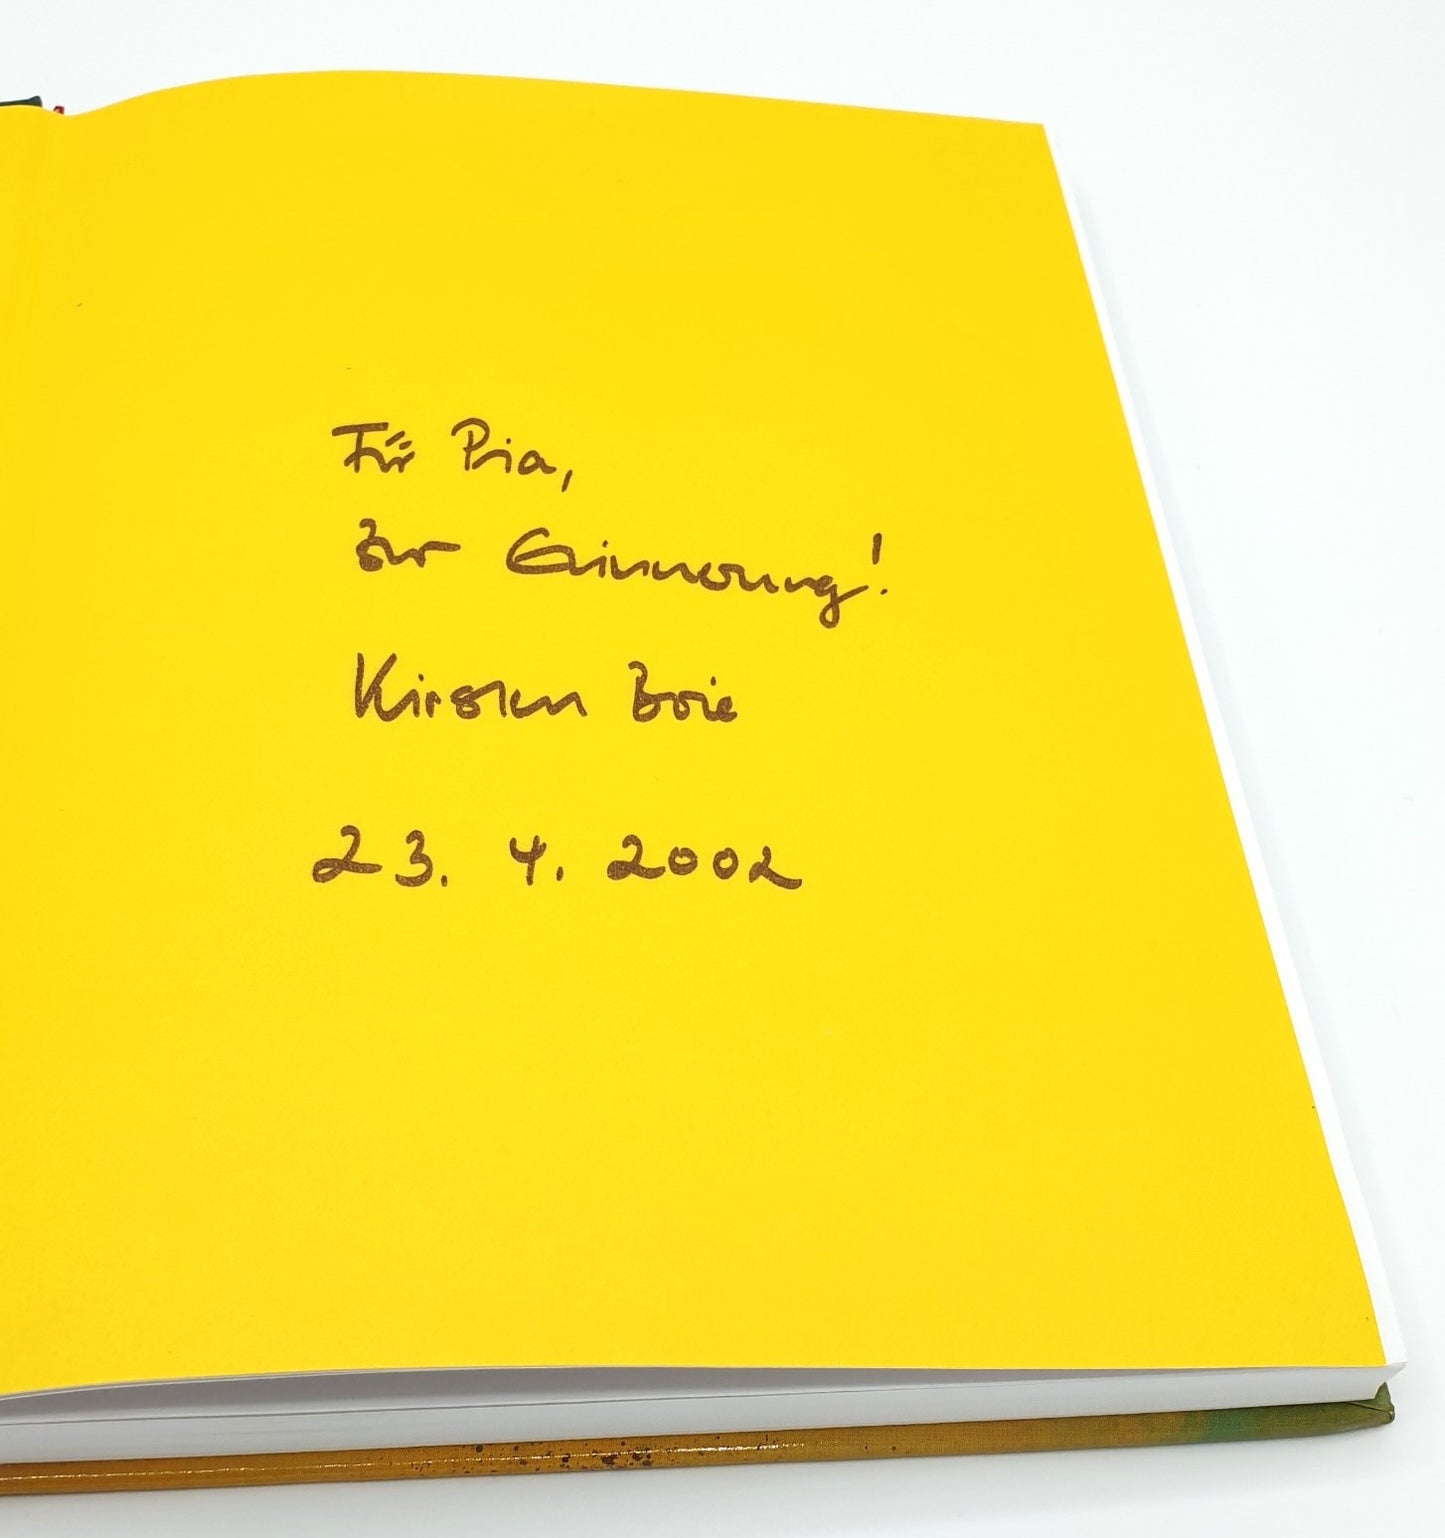 Für Pia,
zur Erinnerung!
Kirsten Boie
23. 4. 2002